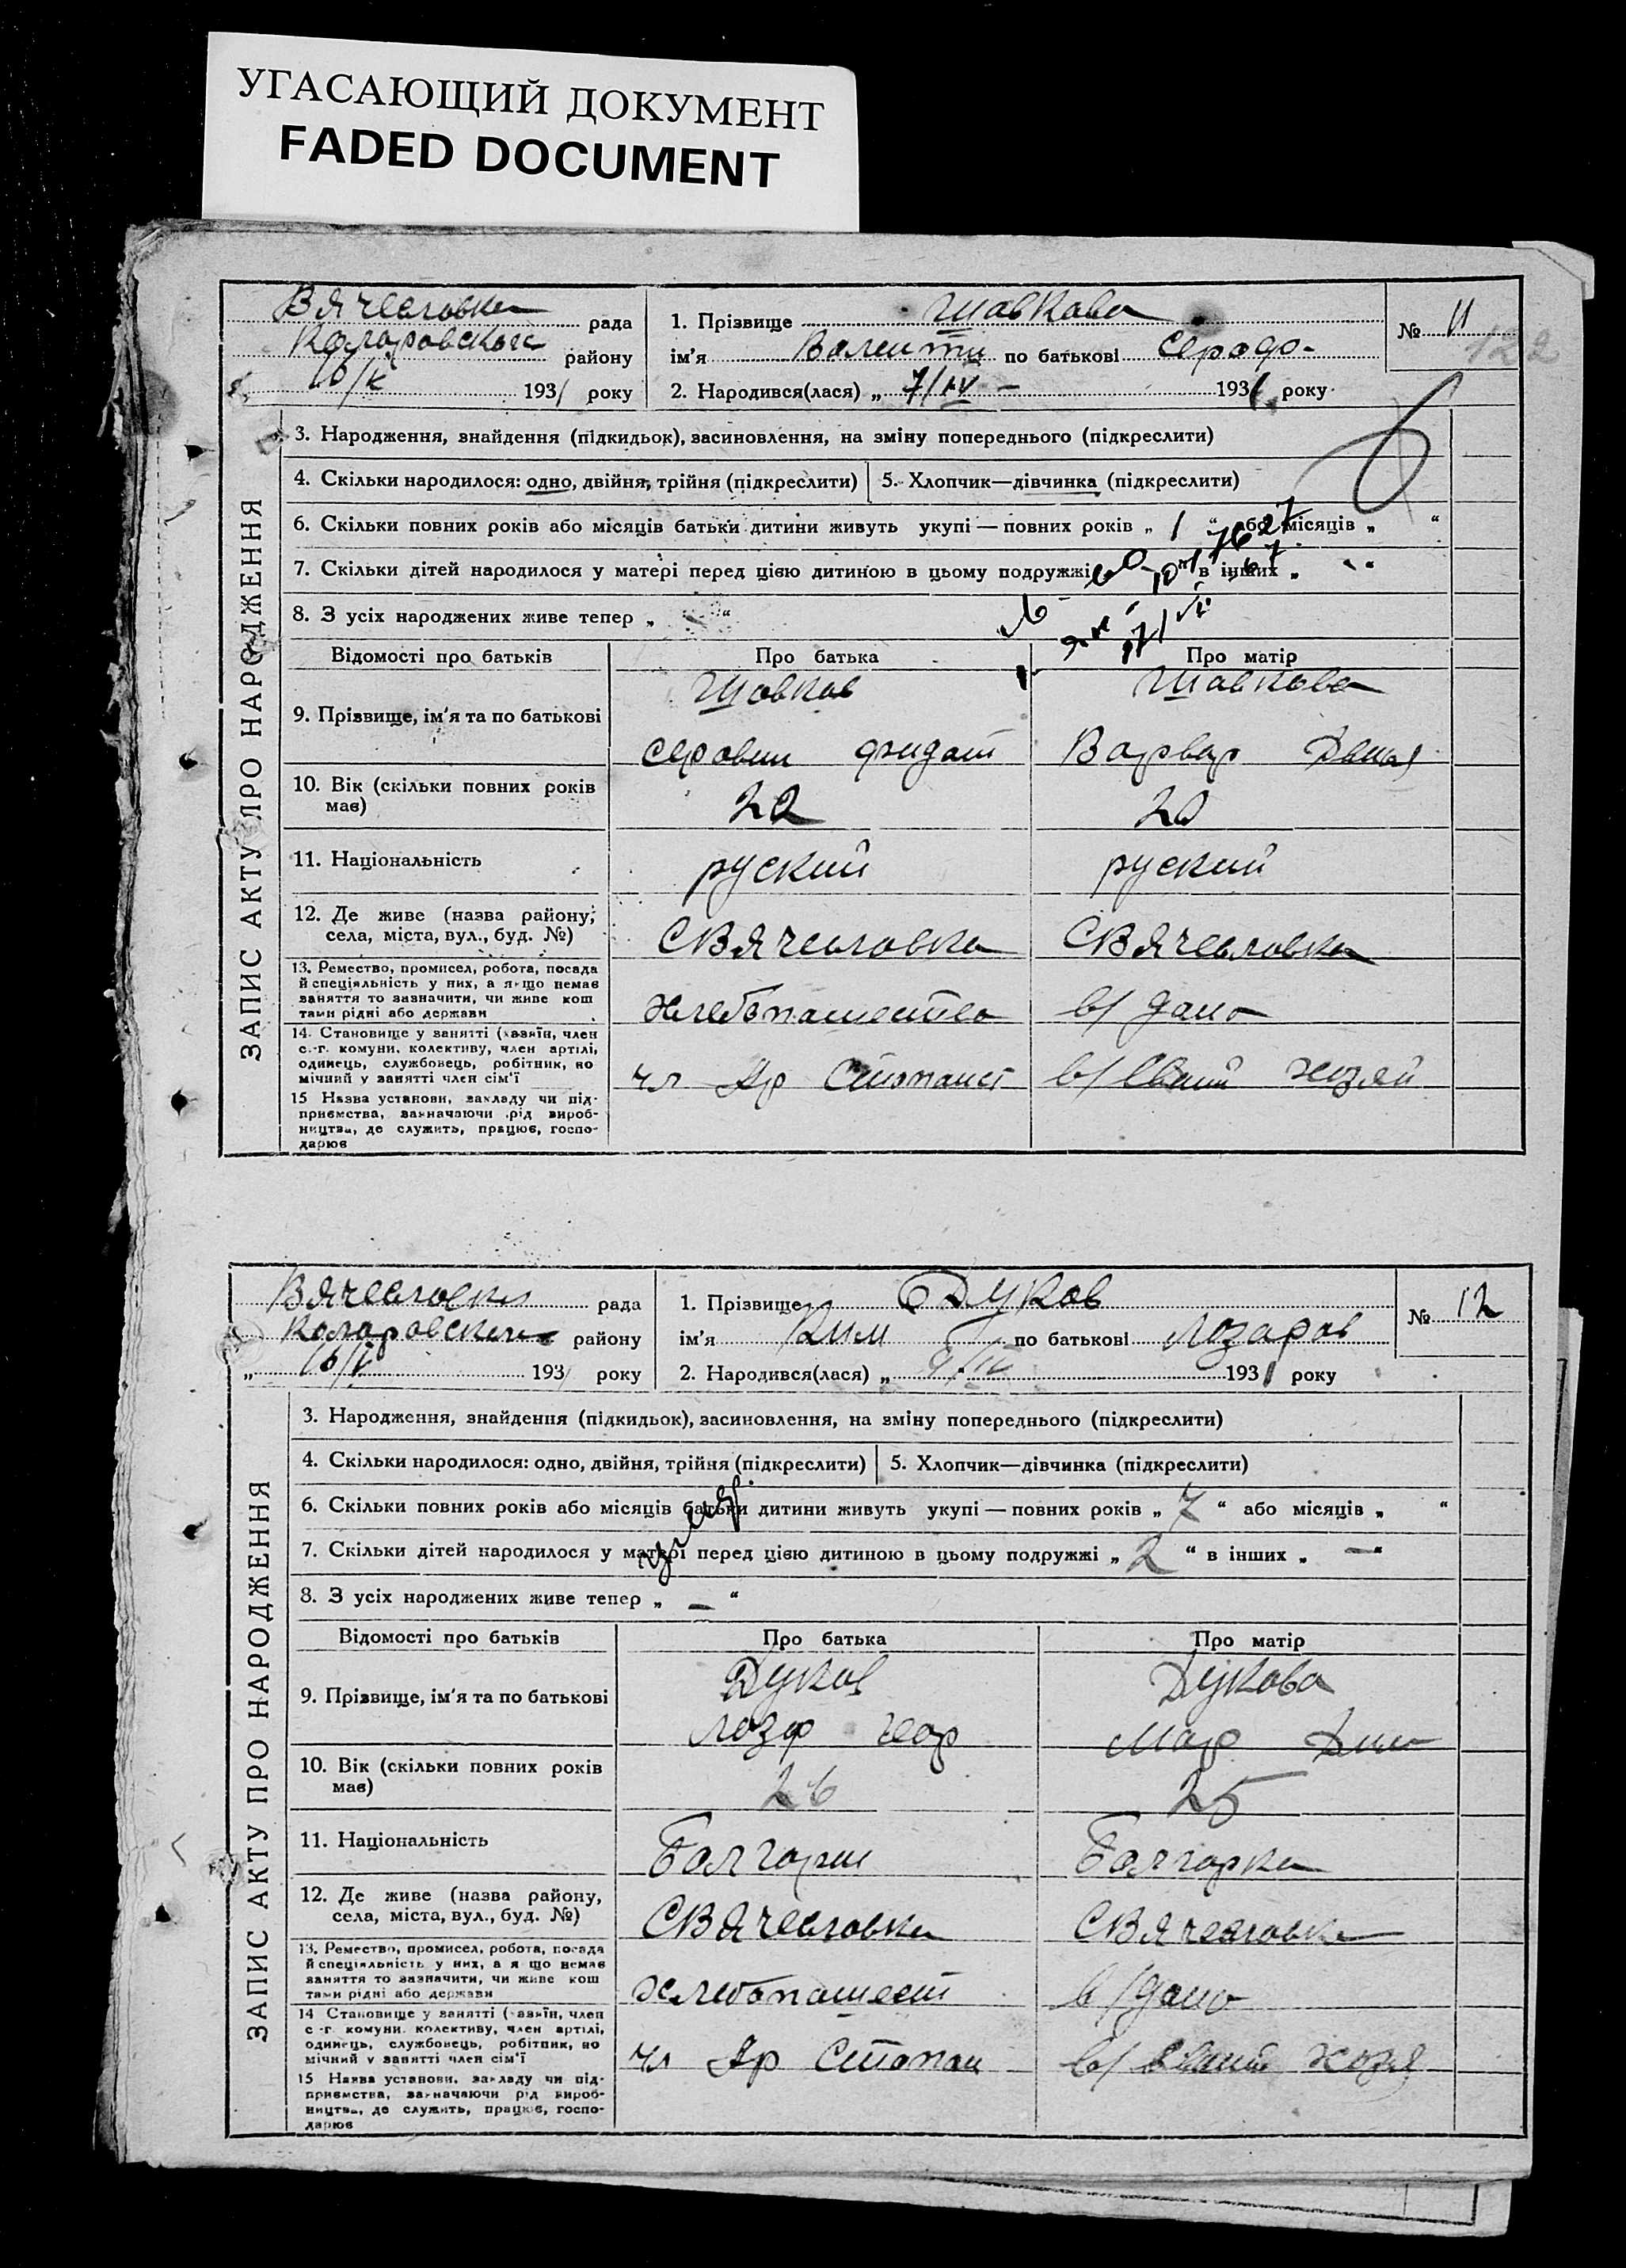 УГАСАЮЩИЙ ДОКУМЕНТ
FADED DOCUMENT
ЗАПИС АКТУ ПРО НАРОДЖЕННЯ
Вячеславка рада
Коларовського району
1931 року
1. Прізвище Шавкова
ім'я Валенти по батькові
2. Народився(лася) „ 7/IV – 1931 року
№ 11
122
3. Народження, знайдення (підкидьок), засиновлення, на зміну попереднього (підкреслити)
4. Скільки народилося: одно, двійня, трійня (підкреслити)
5. Хлопчик—дівчинка (підкреслити)
6. Скільки повних років або місяців батьки дитини живуть укупі — повних років „ 1 “ або місяців „ “
7. Скільки дітей народилося у матері перед цією дитиною в цьому подружжі в інших „ “
8. З усіх народжених живе тепер „ “
Відомості про батьків Про батька Про матір
9. Прізвище, ім'я та по батькові
Шавков Шавкова
Варвар
10. Вік (скільки повних років має)
22 20
11. Національність
руский руский
12. Де живе (назва району, села, міста, вул., буд. №)
СВячеславка СВячеславка
13. Ремество, промисел, робота, посада
й спеціяльність у них, а якщо немає
заняття то зазначити, чи живе кош
тами рідні або держави
хлебопашество в/дано
14. Становище у занятті (хазяїн, член
с.-г. комуни, колективу, член артілі,
одинець, службовець, робітник, по
мічний у занятті член сім'ї
чл Ар
15 Назва установи, закладу чи під-
приємства, зазначаючи рід вироб-
ництва, де служить, працює, госпо-
дарює
ЗАПИС АКТУ ПРО НАРОДЖЕННЯ
Вячеславки рада
району
„ 193 року
1. Прізвище Дуков
ім'я Ким по батькові Лозаров
2. Народився(лася) „ 9/IV 1931 року
№ 12
3. Народження, знайдення (підкидьок), засиновлення, на зміну попереднього (підкреслити)
4. Скільки народилося: одно, двійня, трійня (підкреслити)
5. Хлопчик—дівчинка (підкреслити)
6. Скільки повних років або місяців батьки дитини живуть укупі — повних років „ 7 “ або місяців „ “
7. Скільки дітей народилося у матері перед цією дитиною в цьому подружжі „ 2 “ в інших „ — “
8. З усіх народжених живе тепер „ — “
Відомості про батьків Про батька Про матір
9. Прізвище, ім'я та по батькові
Дуков Дукова
Геор Мар
10. Вік (скільки повних років має)
26 25
11. Національність
Болгарин Болгарка
12. Де живе (назва району, села, міста, вул., буд. №)
СВячеславка СВячеславка
13. Ремество, промисел, робота, посада
й спеціяльність у них, а якщо немає
заняття то зазначити, чи живе кош
тами рідні або держави
хлебопашест в/дано
14 Становище у занятті (хазяїн, член
с.-г. комуни, колективу, член артілі,
одинець, службовець, робітник, по
мічний у занятті член сім'ї
чл Ар Стопан
15 Назва установи, закладу чи під-
приємства, зазначаючи рід вироб-
ництва, де служить, працює, госпо-
дарює